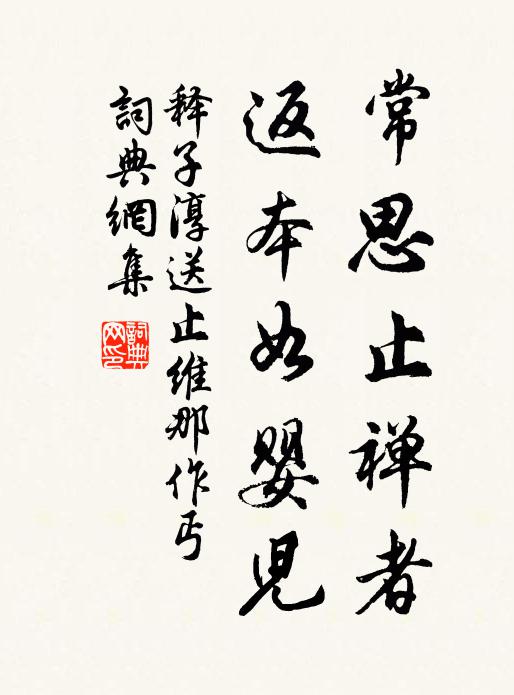 常思止禅者
返本如嬰兒
释子淳送止維那作丐
詞典網集
詞典网印